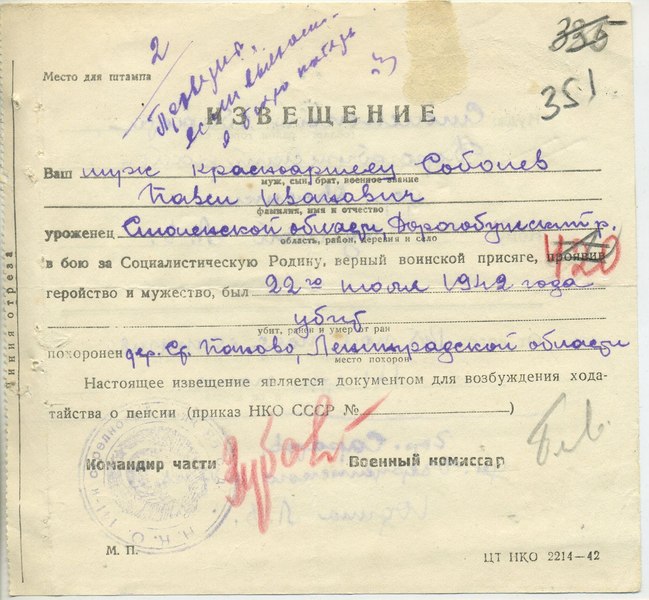 2
335
351
Место для штампа
если
ИЗВЕЩЕНИЕ
Ваш муж красноармеец Соболев
муж, сын, брат, военное звание
Павел Иванович
фамилия, имя и отчество
уроженец Смоленской области Дорогобужский р.
область, район, деревня и село
в бою за Социалистическую Родину, верный воинской присяге, проявив
420
геройство и мужество, был 22го июля 1942 года
убит
убит, ранен и умер от ран
похоронен дер. Ср. Папово, Ленинградской области
место похорон
Настоящее извещение является документом для возбуждения хода-
тайства о пенсии (приказ НКО СССР №)
Командир части
Военный комиссар
М. П.
ЦТ НКО 2214—42
Линия отреза
Н. К. О.